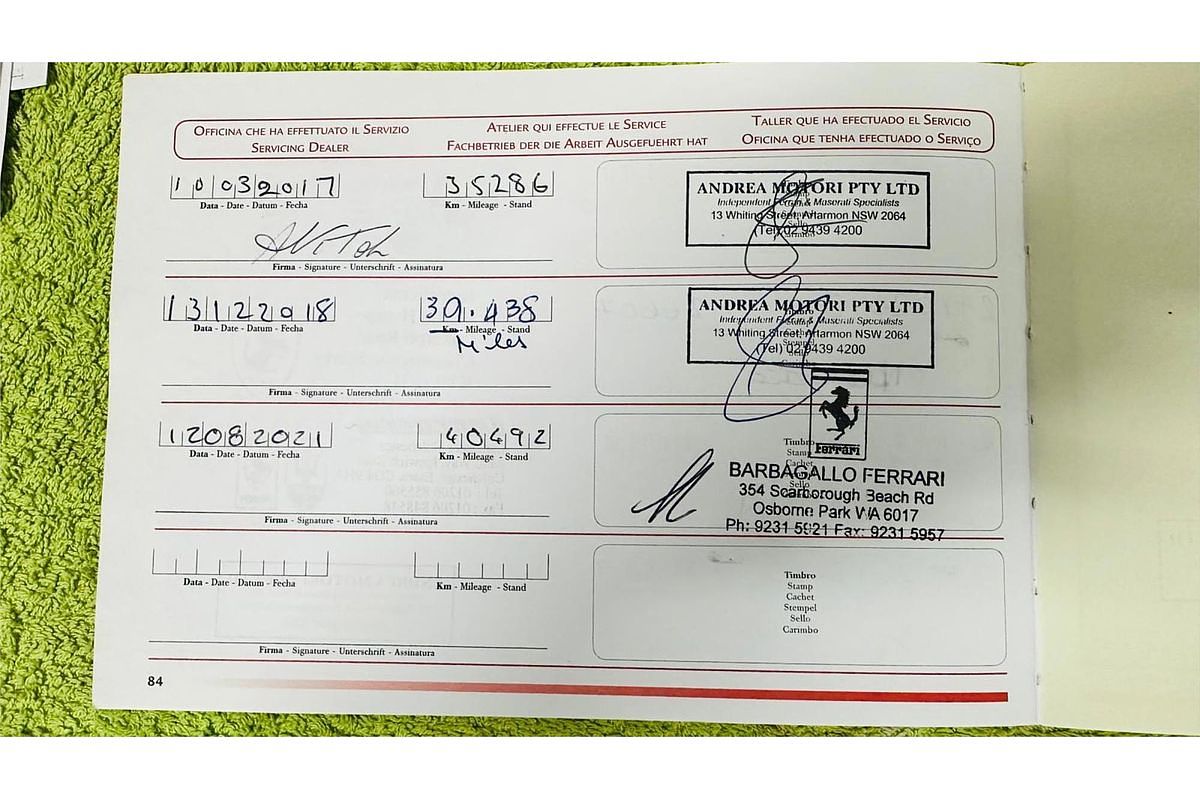 OFFICINA CHE HA EFFETTUATO IL SERVIZIO
SERVICING DEALER
ATELIER QUI EFFECTUE LE SERVICE
FACHBETRIEB DER DIE ARBEIT AUSGEFUEHRT HAT
TALLER QUE HA EFECTUADO EL SERVICIO
OFICINA QUE TENHA EFECTUADO O SERVIÇO
10032017
Data - Date - Datum - Fecha
35286
Km - Mileage - Stand
Firma - Signature - Unterschrift - Assinatura
ANDREA MOTORI PTY LTD
Independent Ferrari & Maserati Specialists
13 Whiting Street, Artarmon NSW 2064
(Tel) 02 9439 4200
13122018
Data - Date - Datum - Fecha
39.438
Km - Mileage - Stand
Miles
Firma - Signature - Unterschrift - Assinatura
ANDREA MOTORI PTY LTD
Independent Ferrari & Maserati Specialists
13 Whiting Street, Artarmon NSW 2064
(Tel) 02 9439 4200
12082021
Data - Date - Datum - Fecha
40492
Km - Mileage - Stand
Firma - Signature - Unterschrift - Assinatura
Ferrari
Timbro
Stamp
Cachet
BARBAGALLO FERRARI
354 Scarborough Beach Rd
Osborne Park WA 6017
Ph: 9231 5921 Fax: 9231 5957
Data - Date - Datum - Fecha
Km - Mileage - Stand
Firma - Signature - Unterschrift - Assinatura
Timbro
Stamp
Cachet
Stempel
Sello
Carimbo
84